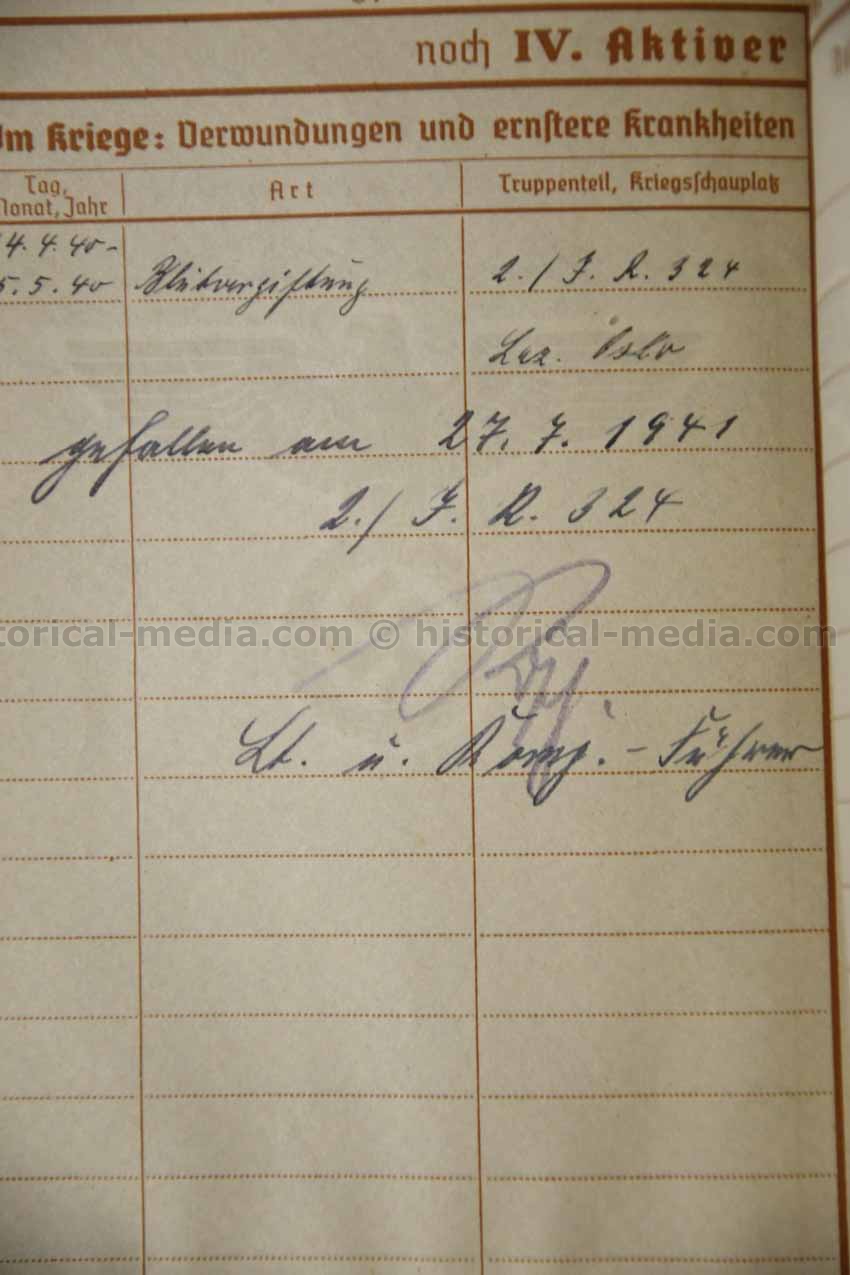 noch IV. Aktiver
Im Kriege: Verwundungen und ernstere Krankheiten
Tag, Monat, Jahr
Art
Truppenteil, Kriegsschauplatz
4.4.40-
5.5.40 Blutvergiftung 2./J.R. 324
Laz. Oslo
gefallen am 27.7.1941
2./J.R. 324
torical-media.com © historical-media.com
Lt. u. Komp.-Führer